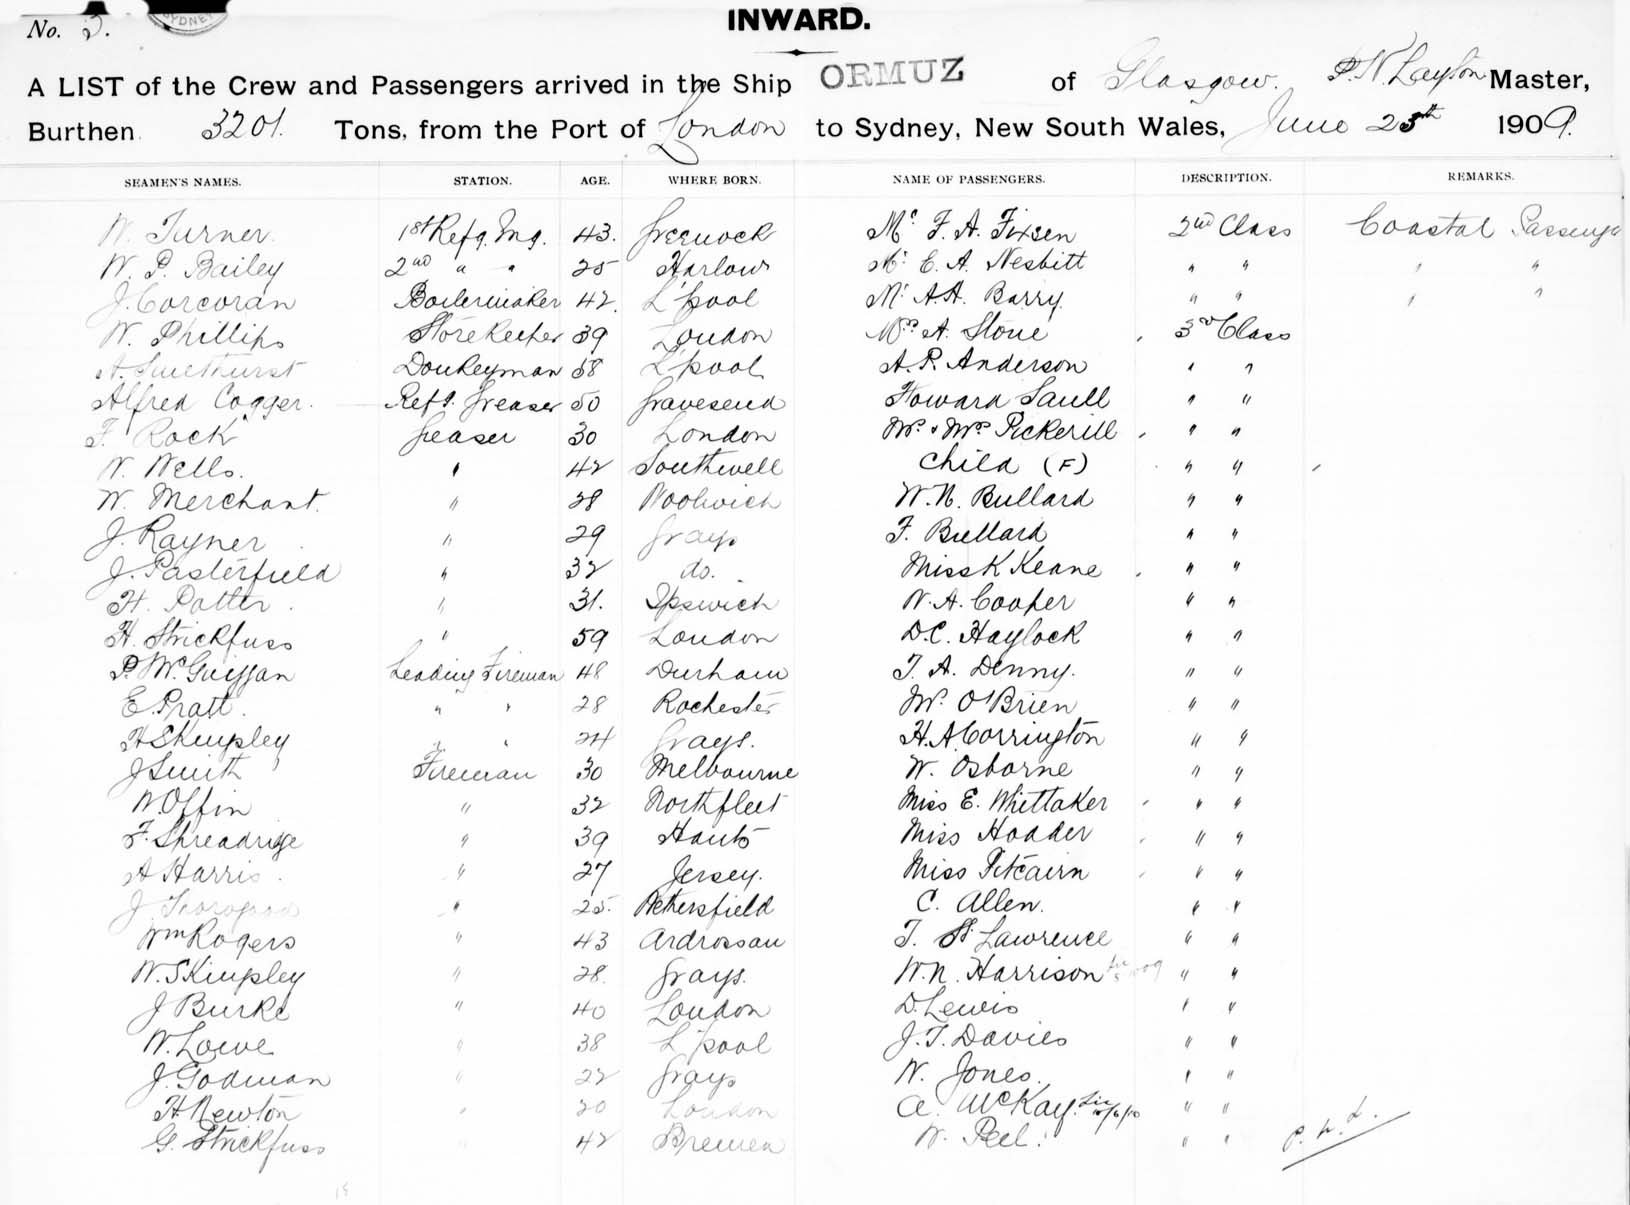 No. 3.
SYDNEY
INWARD.
A LIST of the Crew and Passengers arrived in the Ship ORMUZ of Glasgow. P. N. Layton Master,
Burthen 3201. Tons, from the Port of London to Sydney, New South Wales, June 25th 1909.
SEAMEN'S NAMES. STATION. AGE. WHERE BORN. NAME OF PASSENGERS. DESCRIPTION. REMARKS.
W. Turner. 1st Refg. Eng. 43. Greenock Mr. F. A. Fixsen 2nd Class Coastal Passenger
W. P. Bailey 2nd " " 25 Harlow Mr. E. A. Nesbitt " " " "
J. Corcoran Boilermaker 42. L'pool Mr. A.A. Barry. " " " "
W. Phillips Storekeeper 39 London Mrs. A. Stone 3rd Class
A. Smethurst Donkeyman 58 L'pool A. R. Anderson " "
Alfred Cogger. Refg. Greaser 50 Gravesend Howard Saull " "
F. Rock Greaser 30 London Mr. & Mrs. Pickerill " "
W. Wells. " 42 Southwell Child (F) " "
W. Merchant. " 28 Woolwich W. N. Bullard " "
J. Rayner " 29 Grays F. Bullard " "
J. Pasterfield " 32 do. Miss K Keane " "
H. Potter. " 31. Ipswich W. A. Cooper " "
H. Strickfuss " 59 London D.C. Haylock " "
P. McGuiggan Leading Fireman 48 Durham T. A. Denny. " "
E. Pratt. " " 28 Rochester Mr. O'Brien " "
H Skingley " " 24 Grays. H. A. Corrington " "
J Smith Fireman 30 Melbourne W. Osborne " "
W. Offin " 32 Northfleet Miss E. Whittaker " "
F. Shreadrige " 39 Hants Miss Hodder " "
A Harris. " 27 Jersey. Miss Pitcairn " "
J Thorogood " 25. Wethersfield C. Allen. " "
Wm Rogers " 43 Ardrossan T. St. Lawrence " "
W. Skingley " 28. Grays. W. N. Harrison " "
J Burke " 40 London D. Lewis " "
W. Lowe " 38 L'pool J. T. Davies " "
J. Godman " 22 Grays W. Jones. " "
H. Newton " 20 London A. McKay. 10/6/10 " "
G. Strickfuss " 42 Bremen W. Peel. " " P. N. L.